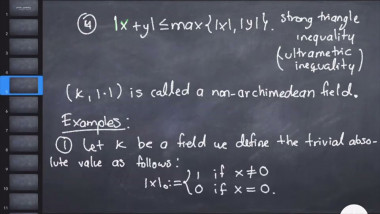 ④ |x+y| ≤ max{|x|, |y|}. strong triangle
inequality
(ultrametric
inequality)
(K, |·|) is called a non-archimedean field.
Examples:
① Let K be a field we define the trivial abso-
lute value as follows:
|x|₀ := { 1 if x ≠ 0
0 if x = 0.